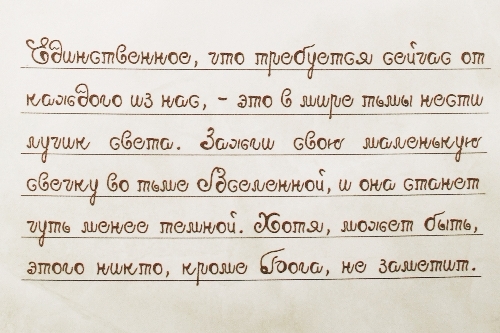 Единственное, что требуется сейчас от
каждого из нас, - это в мире тьмы нести
лучик света. Зажги свою маленькую
свечку во тьме Вселенной, и она станет
чуть менее темной. Хотя, может быть,
этого никто, кроме Бога, не заметит.